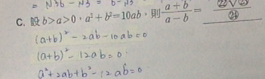 C. 設 b>a>0，a²+b²=10ab，則 (a+b)/(a-b) = (㉒√㉓)/㉔
(a+b)² - 2ab - 10ab = 0
(a+b)² - 12ab = 0
a²+2ab+b² - 12ab = 0